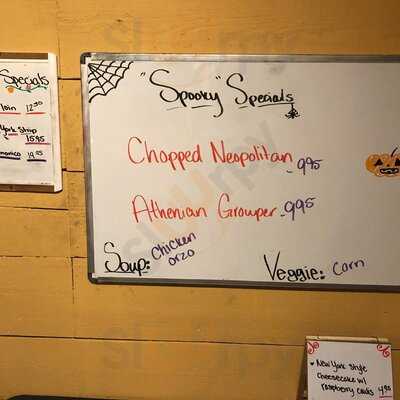 Specials
loin 12.95
York Strip
15.95
19.95
"Spooky" Specials
Chopped Neopolitan - 995
Athenian Grouper - 995
Soup: Chicken
orzo
Veggie: Corn
New York Style
Cheesecake w/
raspberry coulis 4.95